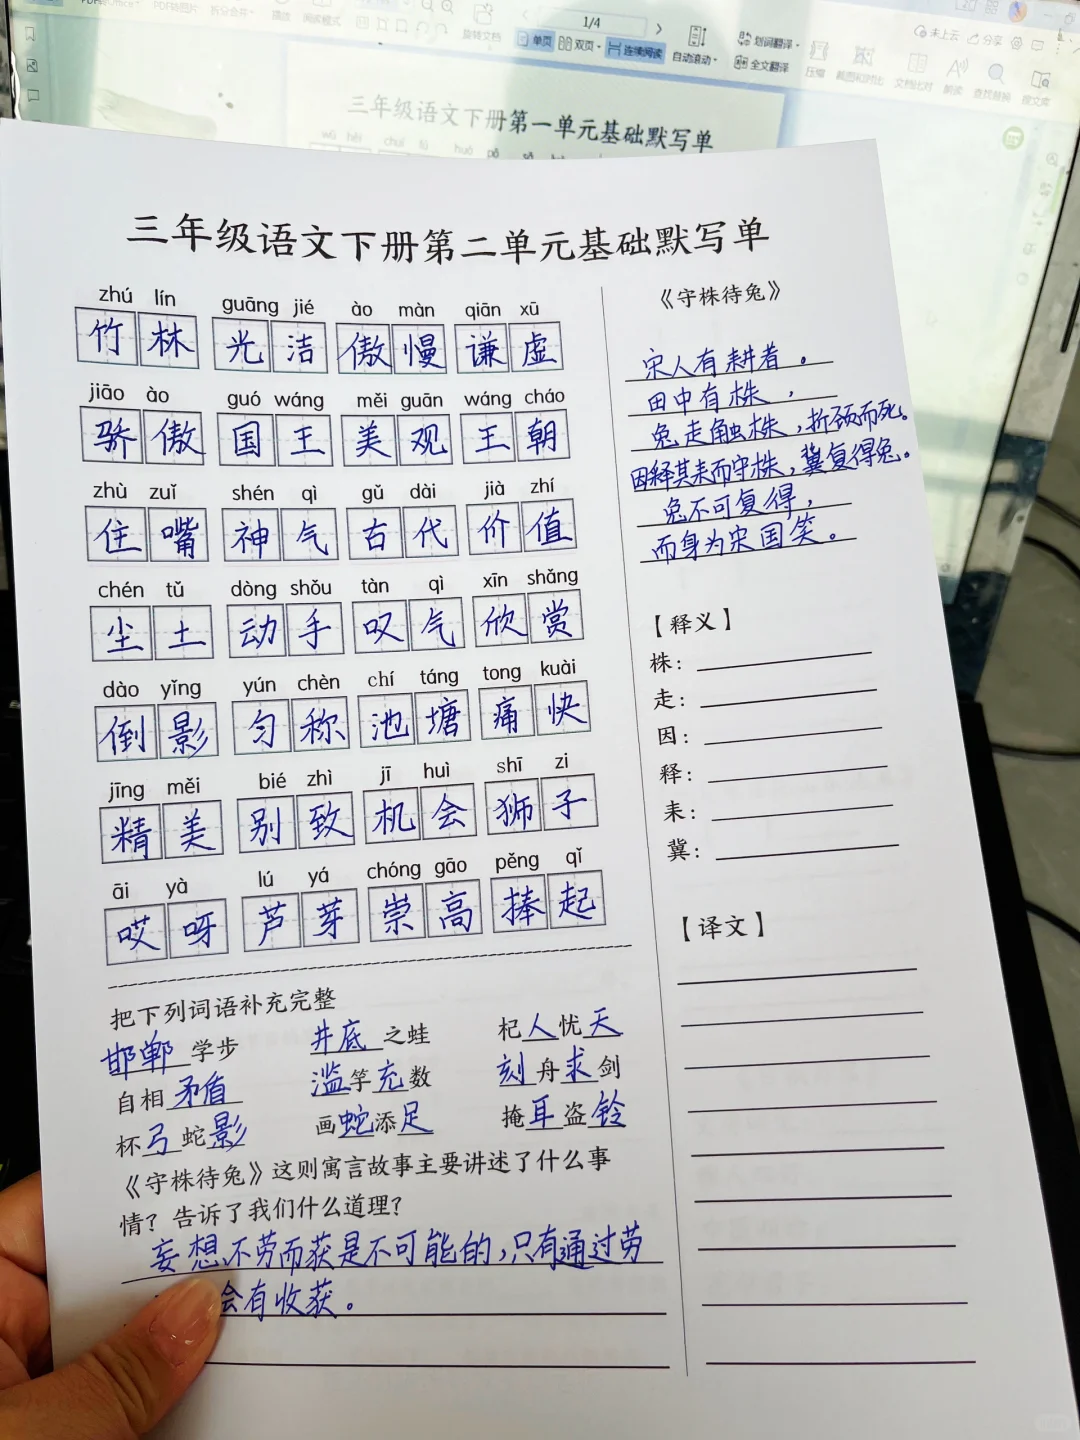 1/4
单页 双页 连续阅读
自动滚动
划词翻译
全文翻译
未上云 分享
旋转文档
压缩
截图和对比
文档比对
朗读
查找替换
三年级语文下册第一单元基础默写单
三年级语文下册第二单元基础默写单
zhú lín guāng jié ào màn qiān xū
竹林 光洁 傲慢 谦虚
jiāo ào guó wáng měi guān wáng cháo
骄傲 国王 美观 王朝
zhù zuǐ shén qì gǔ dài jià zhí
住嘴 神气 古代 价值
chén tǔ dòng shǒu tàn qì xīn shǎng
尘土 动手 叹气 欣赏
dào yǐng yún chèn chí táng tong kuài
倒影 匀称 池塘 痛快
jīng měi bié zhì jī huì shī zi
精美 别致 机会 狮子
āi yà lú yá chóng gāo pěng qǐ
哎呀 芦芽 崇高 捧起
把下列词语补充完整
邯郸学步 井底之蛙 杞人忧天
自相矛盾 滥竽充数 刻舟求剑
杯弓蛇影 画蛇添足 掩耳盗铃
《守株待兔》这则寓言故事主要讲述了什么事
情？告诉了我们什么道理？
妄想不劳而获是不可能的，只有通过劳
会有收获。
《守株待兔》
宋人有耕者。
田中有株，
兔走触株，折颈而死。
因释其耒而守株，冀复得兔。
兔不可复得，
而身为宋国笑。
【释义】
株：
走：
因：
释：
耒：
冀：
【译文】